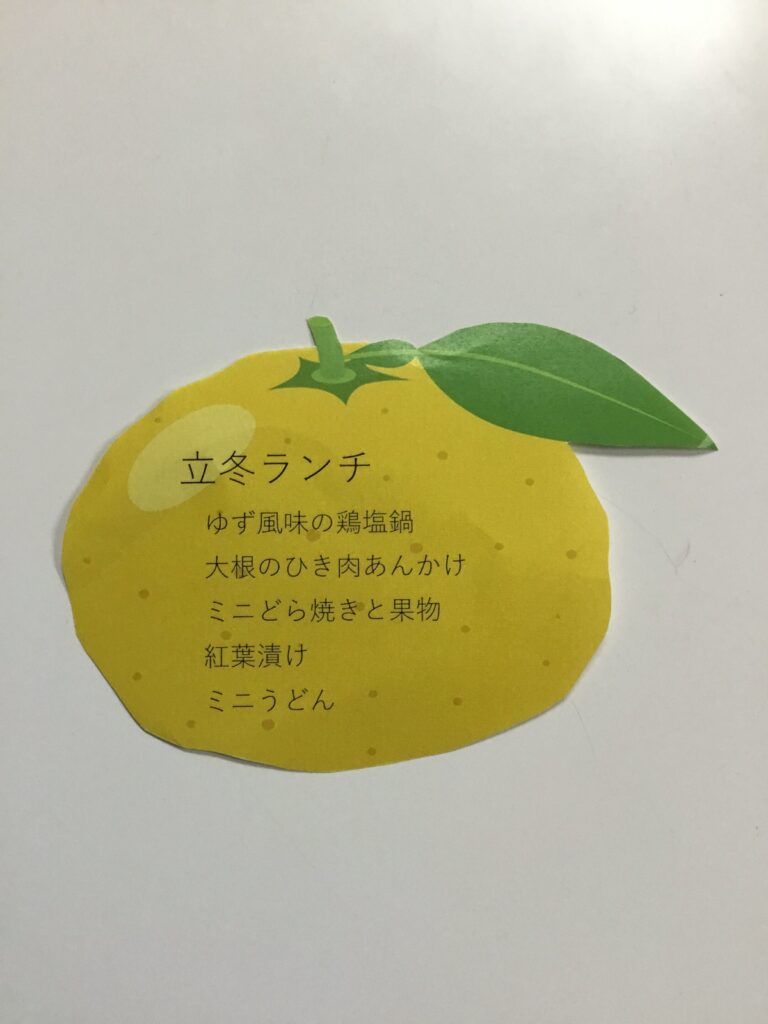 立冬ランチ
ゆず風味の鶏塩鍋
大根のひき肉あんかけ
ミニどら焼きと果物
紅葉漬け
ミニうどん